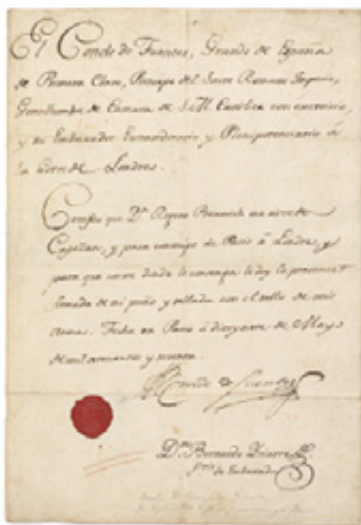 El Conde de Fuentes, Grande de España
de Primera Clase, Principe del Sacro Romano Imperio,
Gentilhombre de Camara de S. M. Catolica con exercicio
y su Embaxador Extraordinario y Plenipotenciario á
la Corte de Londres.
Certifico que Dn.
Capellan, y pasa conmigo de Paris á Londres, y
para que conste donde le convenga le doy la presente
firmada de mi puño y sellada con el sello de mis
Armas. Fecha en Paris á diez y nueve de Mayo
de mil setecientos y sesenta.
El Conde de Fuentes
Dn. Bernardo Yriarte
Srio. de Embaxada